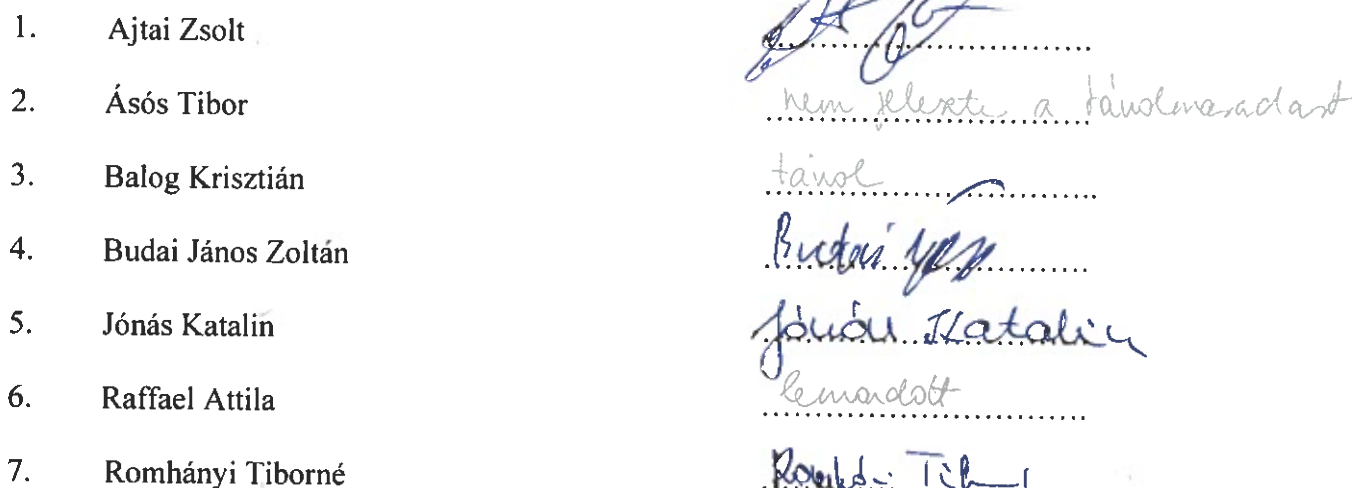 1. Ajtai Zsolt
2. Ásós Tibor nem jelezte a távolmaradást
3. Balog Krisztián távol
4. Budai János Zoltán Budai
5. Jónás Katalin Jónás Katalin
6. Raffael Attila lemondott
7. Romhányi Tiborné